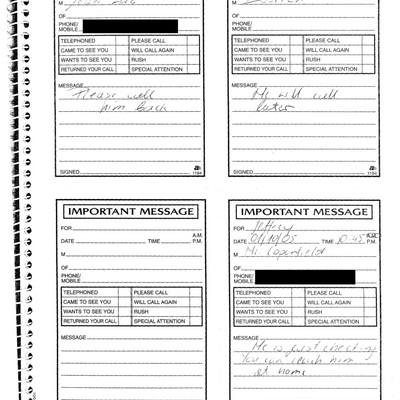 M
OF
PHONE/
MOBILE
TELEPHONED PLEASE CALL
CAME TO SEE YOU WILL CALL AGAIN
WANTS TO SEE YOU RUSH
RETURNED YOUR CALL SPECIAL ATTENTION
MESSAGE
Please call
him back
SIGNED
1184
M
OF
PHONE/
MOBILE
TELEPHONED PLEASE CALL
CAME TO SEE YOU WILL CALL AGAIN
WANTS TO SEE YOU RUSH
RETURNED YOUR CALL SPECIAL ATTENTION
MESSAGE
He will call
later
SIGNED
1184
IMPORTANT MESSAGE
FOR
A.M.
DATE TIME P.M.
M
OF
PHONE/
MOBILE
TELEPHONED PLEASE CALL
CAME TO SEE YOU WILL CALL AGAIN
WANTS TO SEE YOU RUSH
RETURNED YOUR CALL SPECIAL ATTENTION
MESSAGE
IMPORTANT MESSAGE
FOR Jeffrey
A.M.
DATE 01/10/05 TIME 10:45 P.M.
M Mr. Coperfield
OF
PHONE/
MOBILE
TELEPHONED PLEASE CALL
CAME TO SEE YOU WILL CALL AGAIN
WANTS TO SEE YOU RUSH
RETURNED YOUR CALL SPECIAL ATTENTION
MESSAGE He is just checking
You can reach him
at home